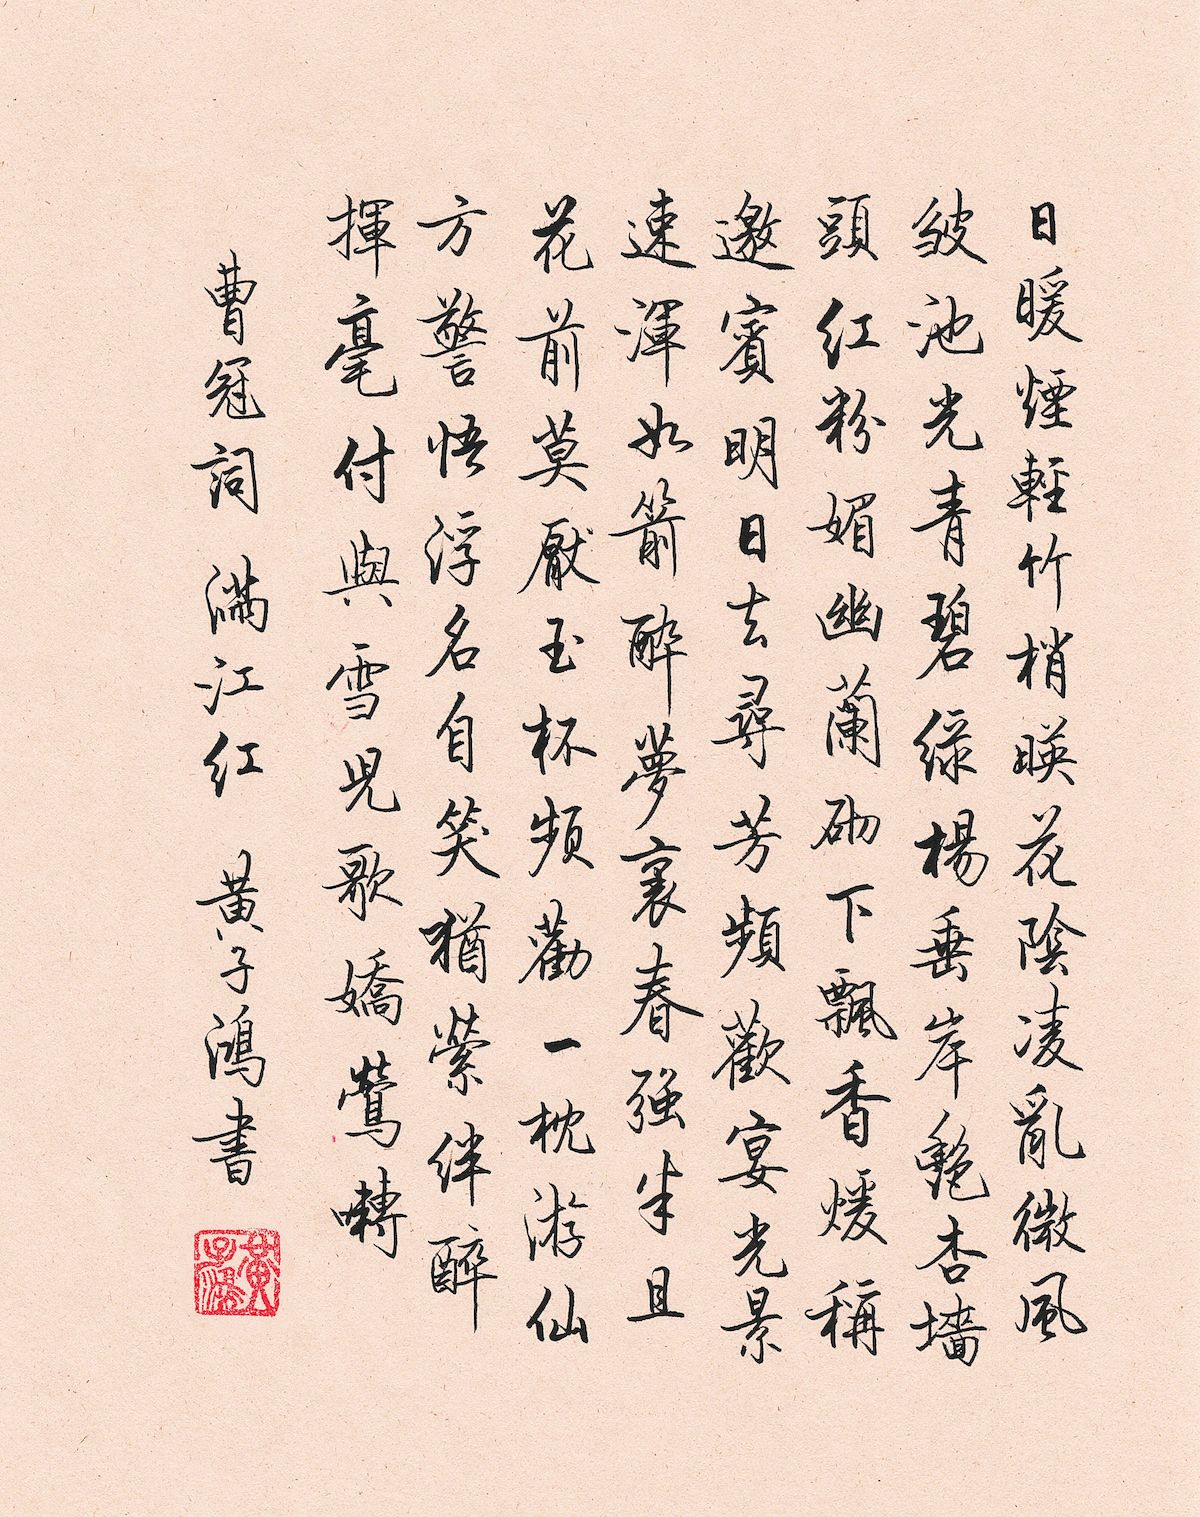 日暖煙輕竹梢暎花陰凌亂微風
皴池光青碧綠楊垂岸艶杏墻
頭紅粉媚幽蘭砌下飄香煖稱
邀賓明日去尋芳頻歡宴光景
速渾如箭醉夢裏春強半且
花前莫厭玉杯頻勸一枕游仙
方警悟浮名自笑猶縈絆醉
揮毫付與雪兒歌嬌鶯囀
曹冠詞 满江红 黄子鴻書
黄子鴻